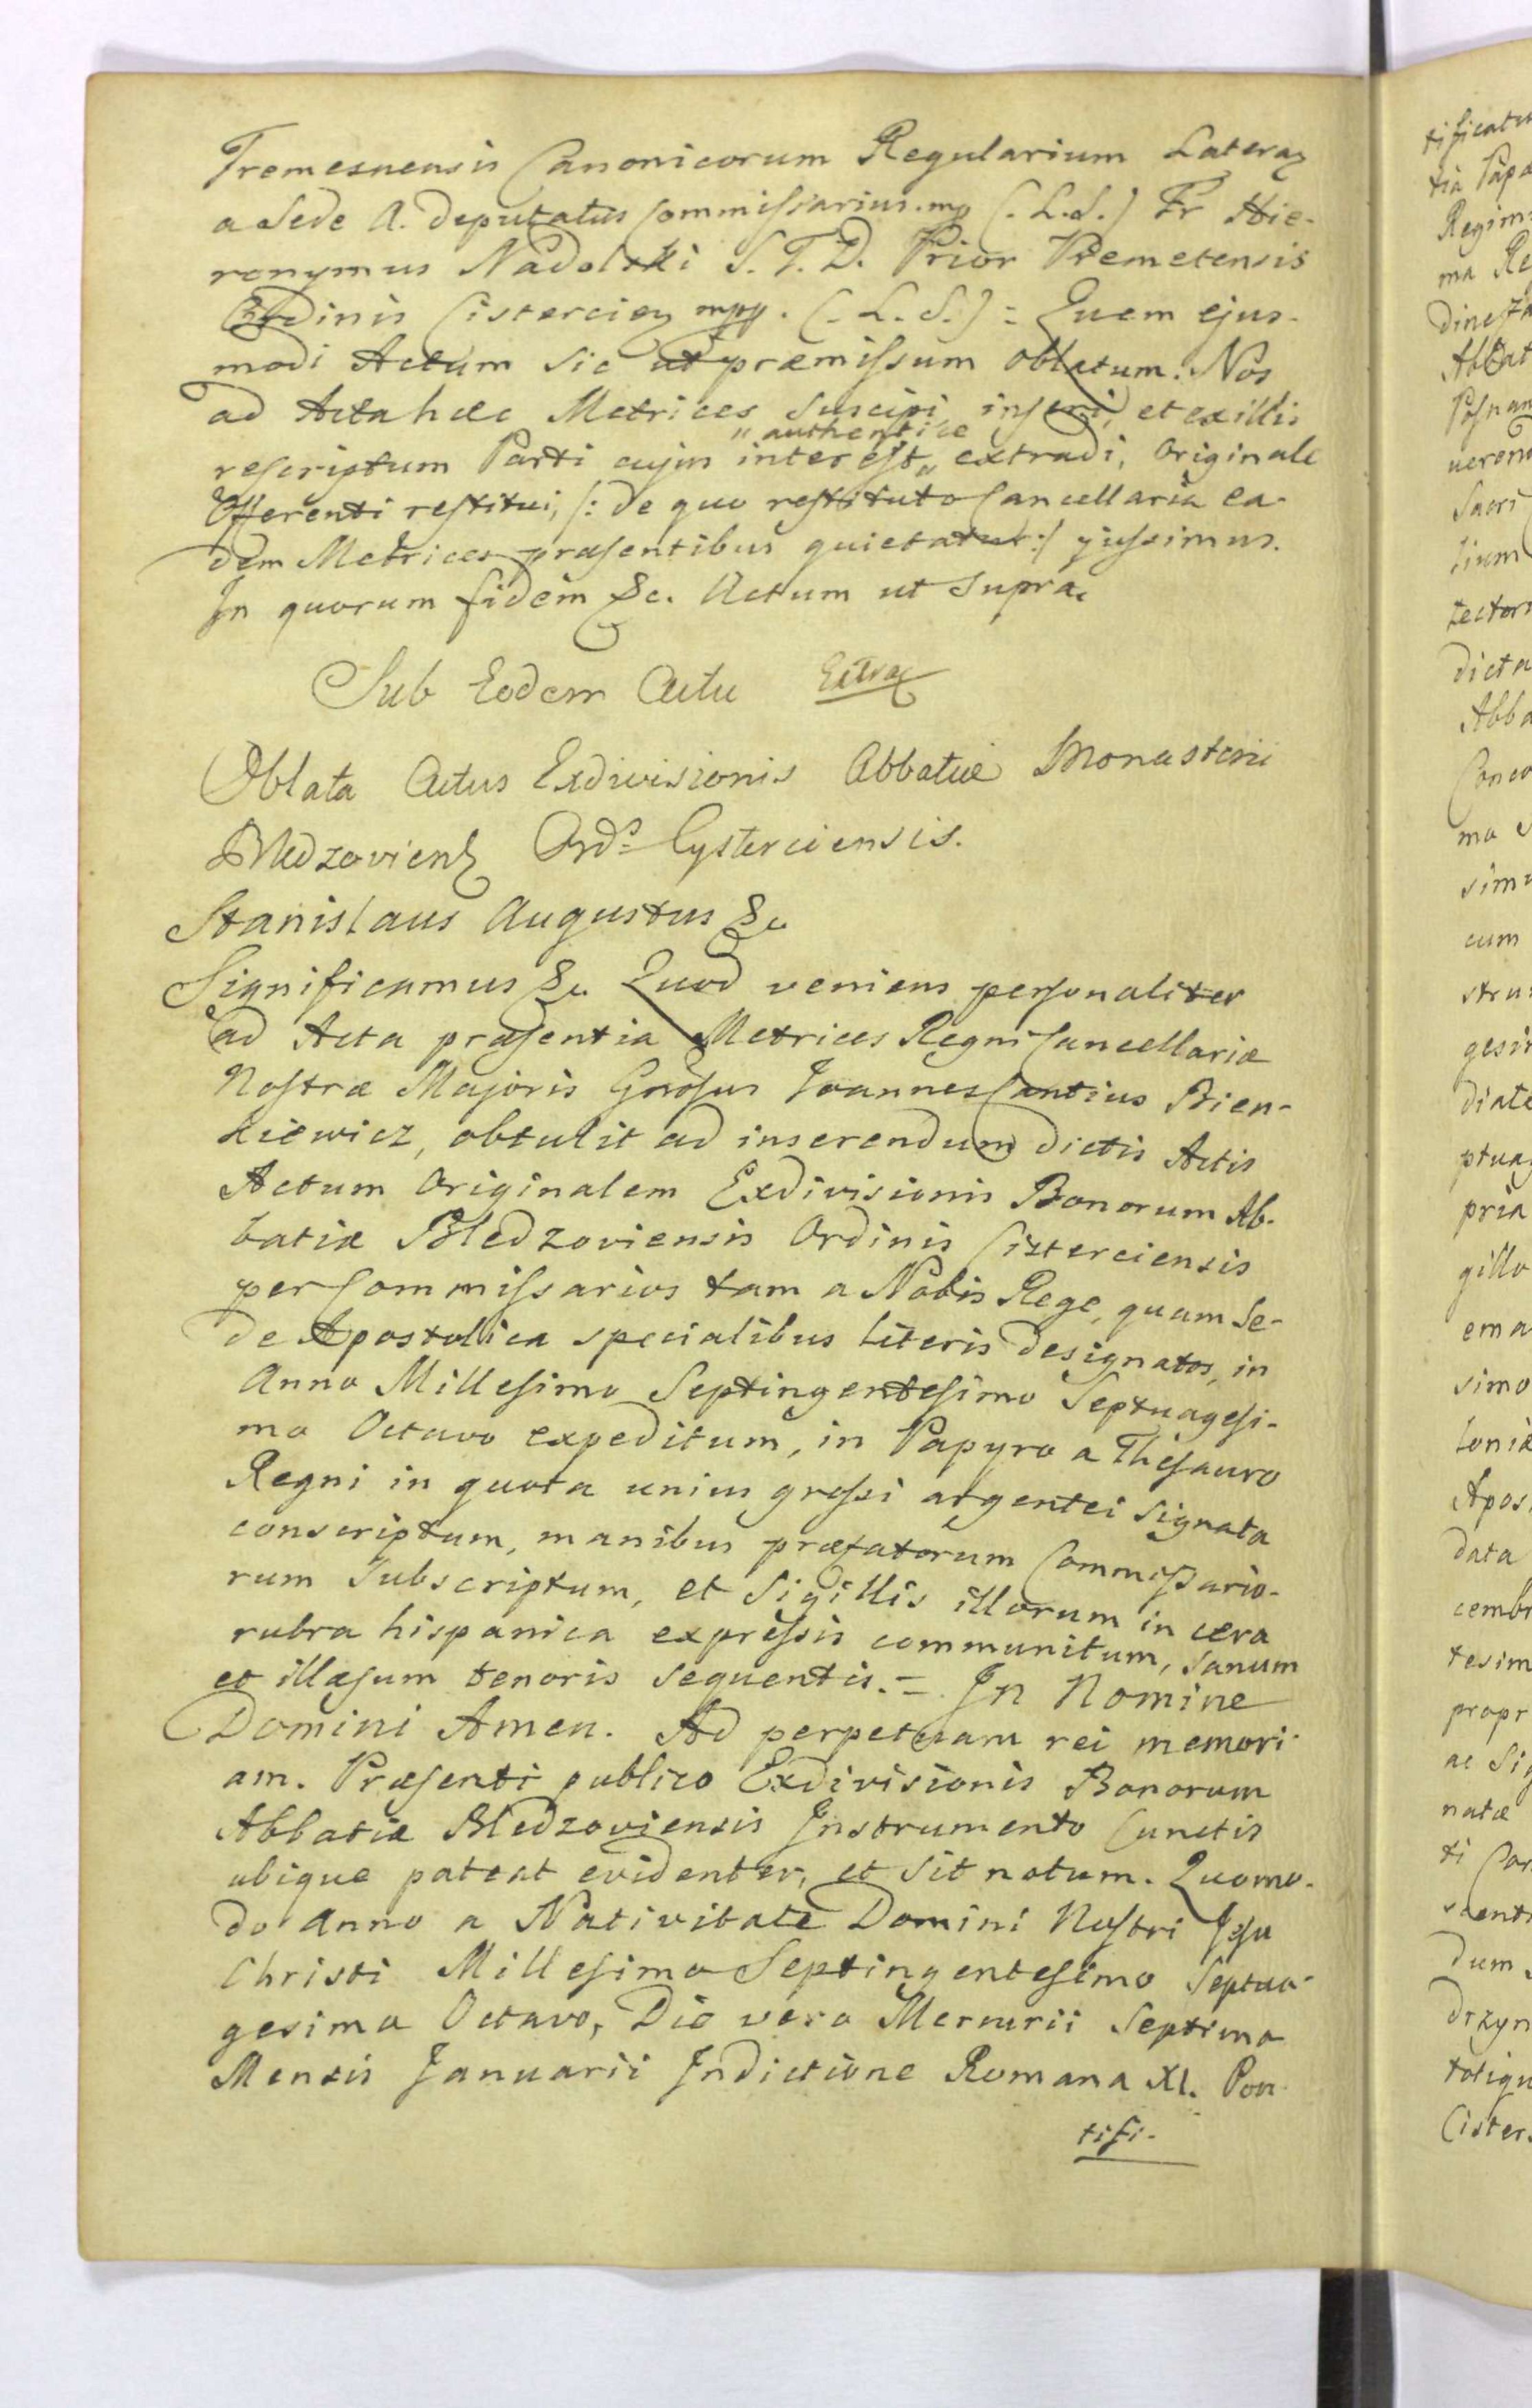 Tremesnensis Canonicorum Regularium Lateran
a Sede A. deputatus Commissarius. mp (. L.S.) Fr Hie-
ronymus Nadolski S. T. D. Prior Premetensis
Ordinis Cistercien mpp. (. L. S.) = Quem ejus-
modi Actum sic ut præmissum oblatum. Nos
ad Acta hæc Metrices suscipi inseri, et ex illis
authentice
rescriptum Parti cujus interest extradi, Originale
Offerenti restitui, /: de quo restituto Cancellaria ea-
dem Metrices præsentibus quietatur :/ jussimus.
In quorum fidem &c. Actum ut supra.
Sub Eodem Actu Extrax
Oblata Actus Exdivisionis Abbatiæ Monasterii
Bledzoviens Ords Cysterciensis.
Stanislaus Augustus &c
Significamus &c. Quod veniens personaliter
ad Acta præsentia Metrices Regni Cancellariæ
Nostræ Majoris Gnrosus Joannes Cantius Bien-
kiewicz, obtulit ad inserendum dictis Actis
Actum Originalem Exdivisionis Bonorum Ab-
batiæ Bledzoviensis Ordinis Cisterciensis
per Commissarios tam a Nobis Rege, quam Se-
de Apostolica specialibus literis designatos, in
Anno Millesimo Septingentesimo Septuagesi-
mo Octavo expeditum, in Papyro a Thesauro
Regni in quota unius grossi argentei signata
conscriptum, manibus præfatorum Commissario-
rum subscriptum, et Sigillis illorum in cera
rubra hispanica expressis communitum, sanum
et illæsum tenoris sequentis. = In Nomine
Domini Amen. Ad perpetuam rei memori-
am. Præsenti publico Exdivisionis Bonorum
Abbatiæ Bledzoviensis Instrumento Cunctis
ubique pateat evidenter, et sit notum. Quomo-
do Anno a Nativitate Domini Nostri Jesu
Christi Millesimo Septingentesimo Septua-
gesimo Octavo, Die vero Mercurii Septima
Mensis Januarii Indictione Romana XI. Pon-
tifi-